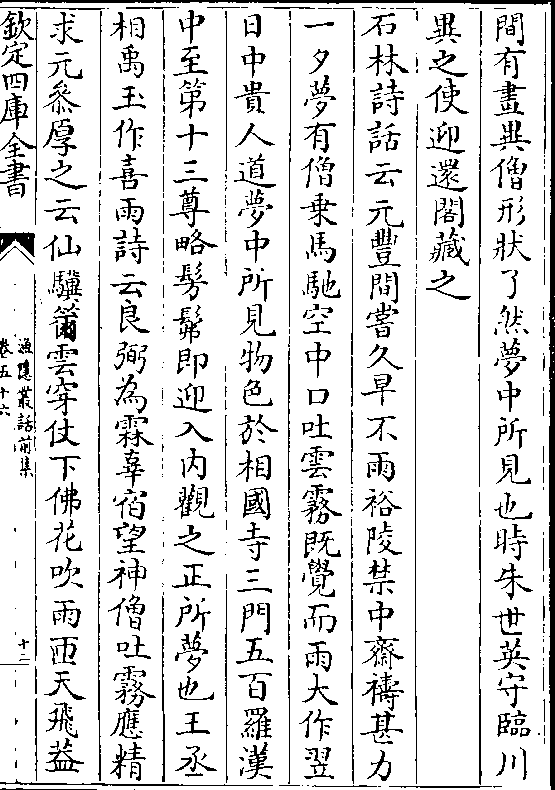 間有畫異僧形狀了然夢中所見也時朱世英守臨川
異之使迎還閣藏之
石林詩話云元豐間嘗久旱不雨裕陵禁中齋禱甚力
一夕夢有僧乗馬馳空中口吐雲霧既覺而雨大作翌
日中貴人道夢中所見物色於相國寺三門五百羅漢
中至第十三尊略髣髴即迎入内觀之正所夢也王丞
相禹玉作喜雨詩云良弼為霖辜宿望神僧吐霧應精
求元叅厚之云仙驥籋雲穿仗下佛花吹雨匝天飛葢
欽定四庫全書
漁隱叢話前集
卷五十六
十二